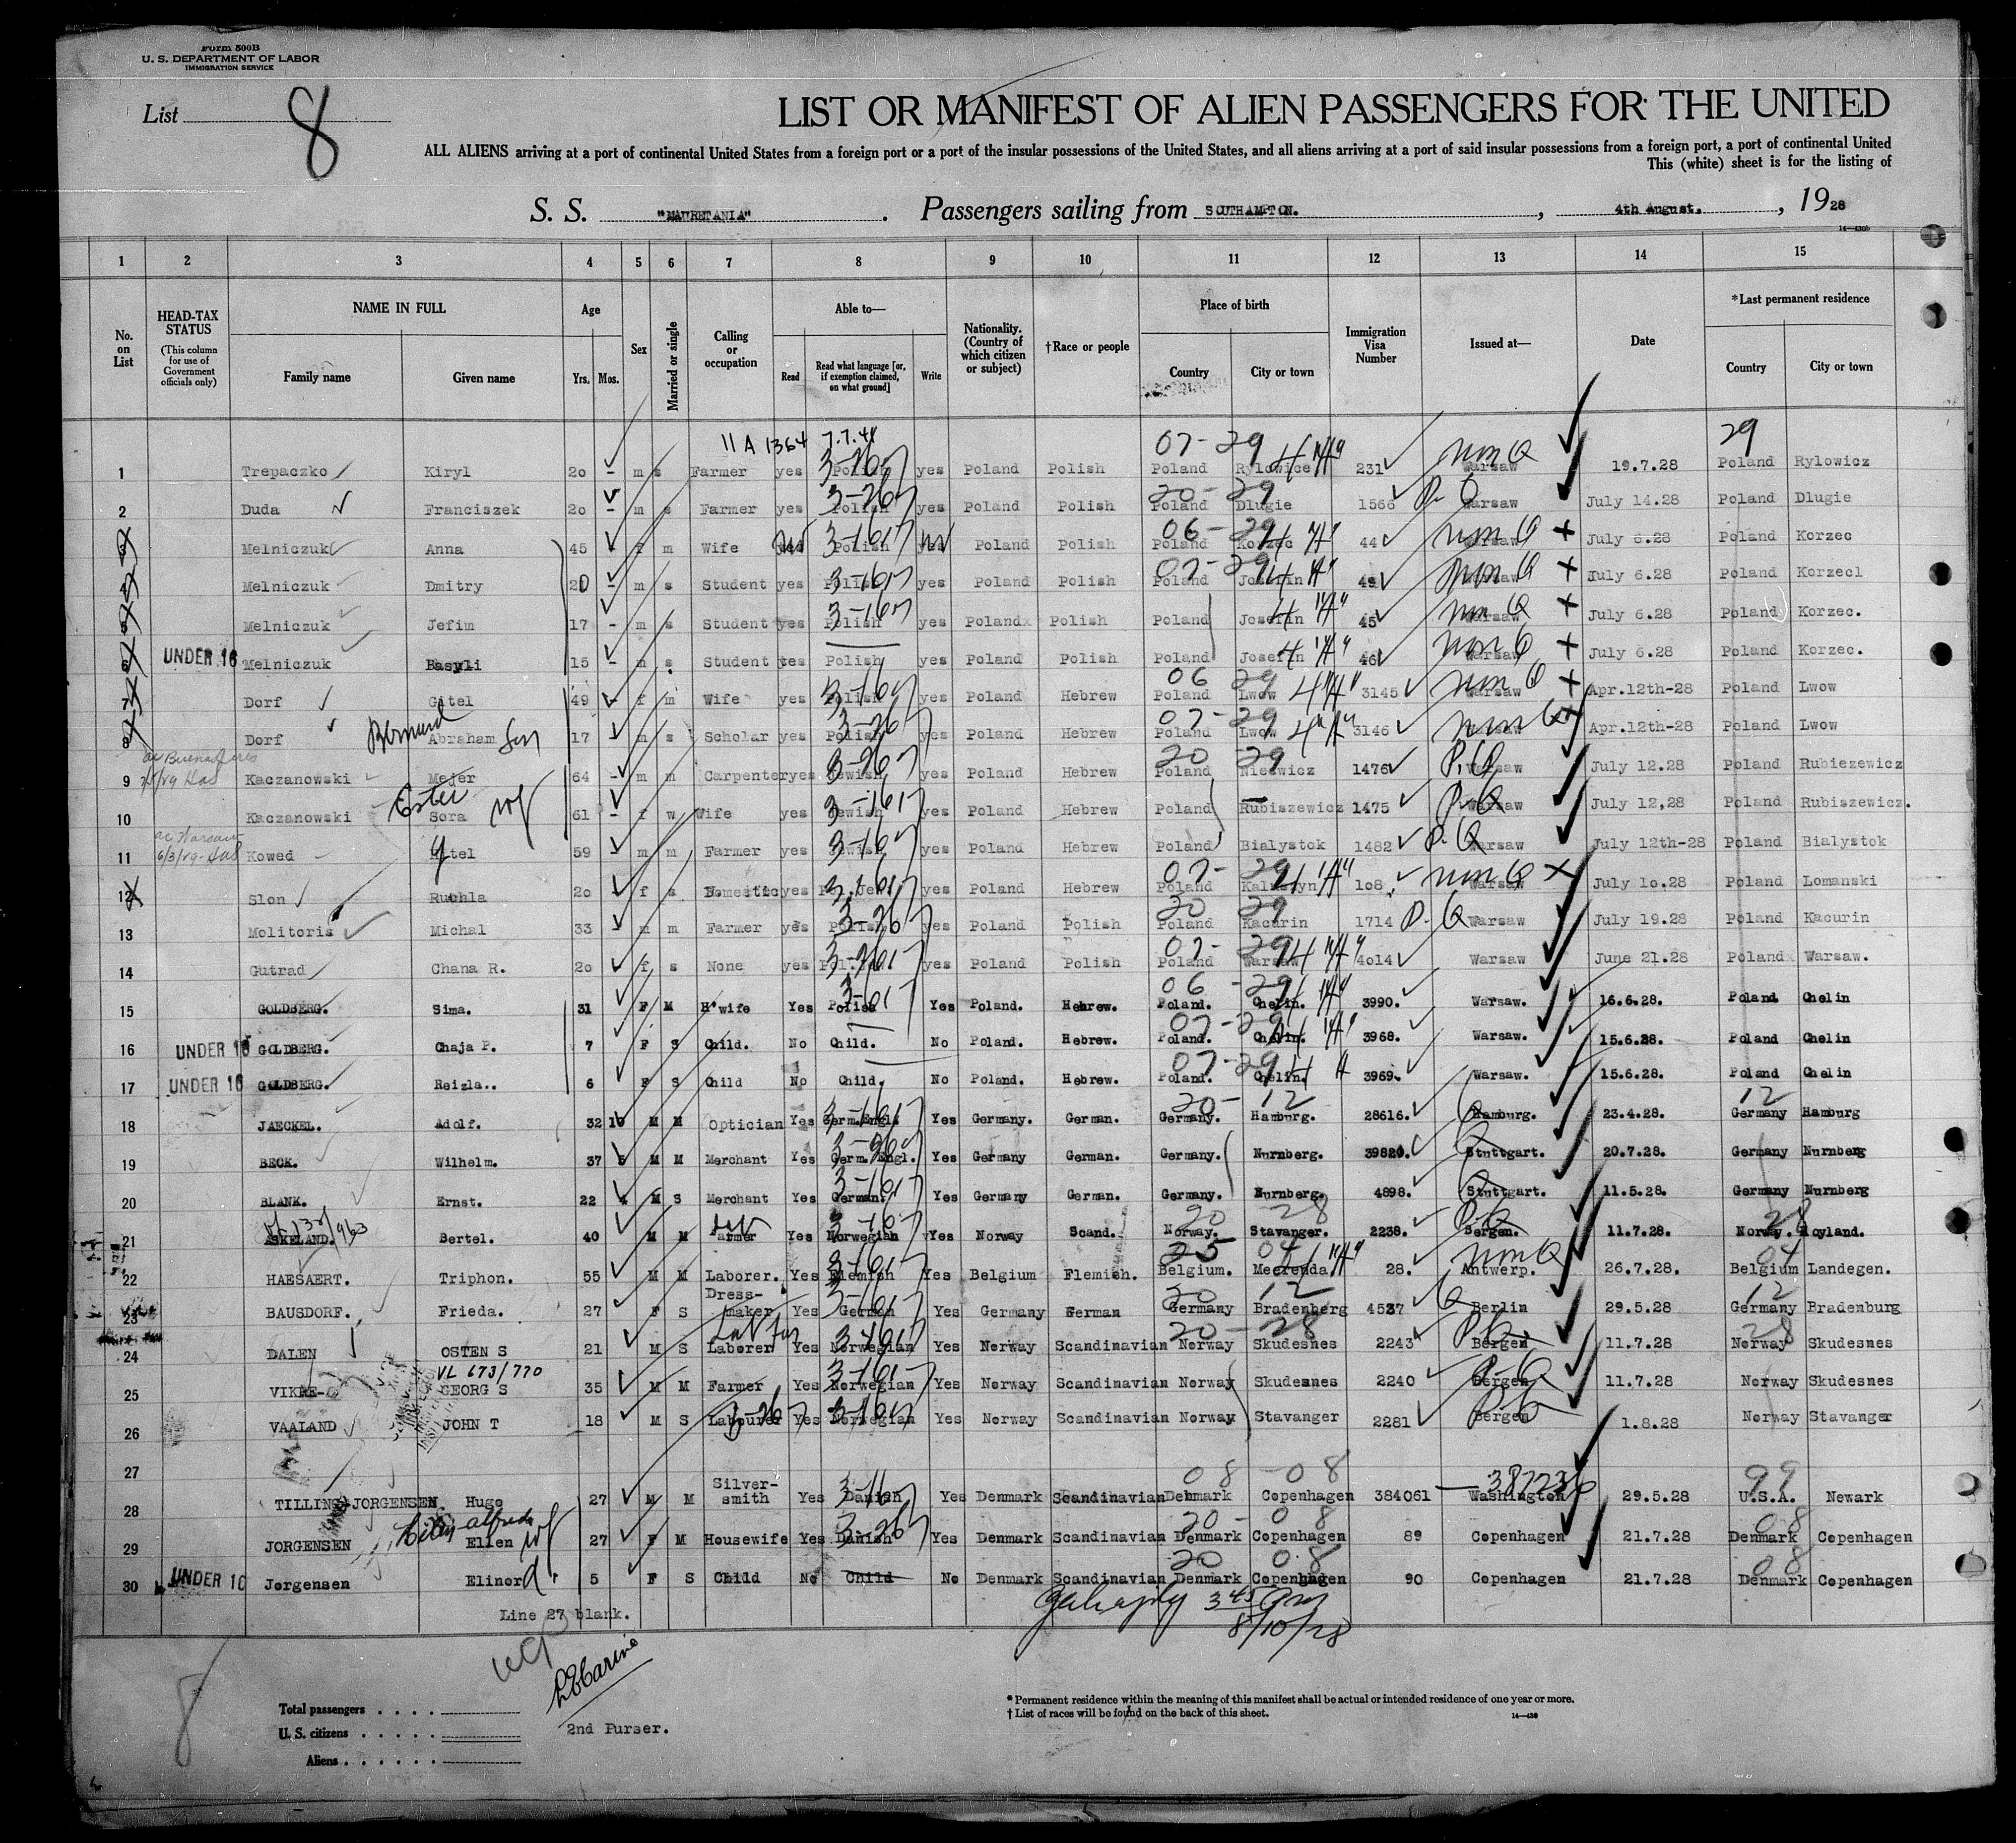 Form 500B
U. S. DEPARTMENT OF LABOR
IMMIGRATION SERVICE
List 8
LIST OR MANIFEST OF ALIEN PASSENGERS FOR THE UNITED
ALL ALIENS arriving at a port of continental United States from a foreign port or a port of the insular possessions of the United States, and all aliens arriving at a port of said insular possessions from a foreign port, a port of continental United
This (white) sheet is for the listing of
S. S. "MAURETANIA". Passengers sailing from SOUTHAMPTON., 4th August., 1928
14—430b
1 2 3 4 5 6 7 8 9 10 11 12 13 14 15
No. on List
HEAD-TAX STATUS (This column for use of Government officials only)
NAME IN FULL Family name Given name
Age Yrs. Mos.
Sex
Married or single
Calling or occupation
Able to— Read Read what language [or, if exemption claimed, on what ground] Write
Nationality. (Country of which citizen or subject)
†Race or people
Place of birth Country City or town
Immigration Visa Number
Issued at—
Date
*Last permanent residence Country City or town
11 A 1364 7.7.41 07-29 29
1 Trepaczko Kiryl 20 - m s Farmer yes Polish yes Poland Polish Poland Rylowice 231 Warsaw 19.7.28 Poland Rylowicz
2 Duda Franciszek 20 - m s Farmer yes Polish yes Poland Polish Poland Dlugie 1566 Warsaw July 14.28 Poland Dlugie
3 Melniczuk Anna 45 f m Wife yes Polish yes Poland Polish Poland Korzec 44 Warsaw July 6.28 Poland Korzec
4 Melniczuk Dmitry 20 - m s Student yes Polish yes Poland Polish Poland Josefin 49 Warsaw July 6.28 Poland Korzecl
5 Melniczuk Jefim 17 - m s Student yes Polish yes Poland Polish Poland Josefin 45 Warsaw July 6.28 Poland Korzec.
6 UNDER 16 Melniczuk Basyli 15 - m s Student yes Polish yes Poland Polish Poland Josefin 46 Warsaw July 6.28 Poland Korzec.
7 Dorf Gitel 49 - f m Wife yes Polish yes Poland Hebrew Poland Lwow 3145 Warsaw Apr.12th-28 Poland Lwow
8 Dorf Abraham 17 m s Scholar yes Polish yes Poland Hebrew Poland Lwow 3146 Warsaw Apr.12th-28 Poland Lwow
9 Kaczanowski Mejer 64 - m m Carpenter yes Jewish yes Poland Hebrew Poland Niezwicz 1476 Warsaw July 12.28 Poland Rubiezewicz
Ester
10 Kaczanowski Sora 61 - f w Wife yes Jewish yes Poland Hebrew Poland Rubiszewicz 1475 Warsaw July 12,28 Poland Rubiszewicz.
11 Kowed Gitel 59 m m Farmer yes Jewish yes Poland Hebrew Poland Bialystok 1482 Warsaw July 12th-28 Poland Bialystok
12 Slon Ruchla 20 f s Domestic yes yes Poland Hebrew Poland Kaluszyn 108 Warsaw July 10.28 Poland Lomanski
13 Molitoris Michal 33 m m Farmer yes Polish yes Poland Polish Poland Kacurin 1714 Warsaw July 19.28 Poland Kacurin
14 Gutrad Chana R. 20 f s None yes yes Poland Polish Poland Warsaw 4014 Warsaw June 21.28 Poland Warsaw.
15 GOLDBERG. Sima. 31 F M H'wife Yes Polish Yes Poland. Hebrew. Poland. Chelin. 3990. Warsaw. 16.6.28. Poland Chelin
16 UNDER 16 GOLDBERG. Chaja P. 7 F S Child. No Child. No Poland. Hebrew. Poland. Chelin. 3968. Warsaw. 15.6.28. Poland Chelin
17 UNDER 16 GOLDBERG. Reizla.. 6 F S Child No Child. No Poland. Hebrew. Poland. Chelin. 3969. Warsaw. 15.6.28. Poland Chelin
18 JAECKEL. Adolf. 32 10 M M Optician Yes Germ.Engl Yes Germany. German. Germany. Hamburg. 28616. Hamburg. 23.4.28. Germany Hamburg
19 BECK. Wilhelm. 37 5 M M Merchant Yes Germ. Engl. Yes Germany German. Germany. Nurnberg. 39820. Stuttgart. 20.7.28. Germany Nurnberg
20 BLANK. Ernst. 22 4 M S Merchant Yes German. Yes Germany German. Germany. Nurnberg. 4898. Stuttgart. 11.5.28. Germany Nurnberg
21 ASKELAND. Bertel. 40 M M Farmer Yes Norwegian Yes Norway Scand. Norway. Stavanger. 2238. Bergen. 11.7.28. Norway. Hoyland.
22 HAESAERT. Triphon. 55 M M Laborer. Yes Flemish Yes Belgium Flemish. Belgium. 28. Antwerp. 26.7.28. Belgium Landegen.
23 BAUSDORF. Frieda. 27 F S Dress-maker Yes German Yes Germany German Germany Bradenberg 4537 Berlin 29.5.28 Germany Bradenburg
24 DALEN OSTEN S 21 M S Laborer Yes Norwegian Yes Norway Scandinavian Norway Skudesnes 2243 Bergen 11.7.28 Norway Skudesnes
VL 673/770
25 VIKRE GEORG S 35 M M Farmer Yes Norwegian Yes Norway Scandinavian Norway Skudesnes 2240 Bergen 11.7.28 Norway Skudesnes
26 VAALAND JOHN T 18 M S Labourer Yes Norwegian Yes Norway Scandinavian Norway Stavanger 2281 Bergen 1.8.28 Norway Stavanger
27
28 TILLING-JORGENSEN Hugo 27 M M Silver-smith Yes Danish Yes Denmark Scandinavian Denmark Copenhagen 384061 Washington 29.5.28 U.S.A. Newark
29 JORGENSEN Ellen 27 F M Housewife Yes Danish Yes Denmark Scandinavian Denmark Copenhagen 89 Copenhagen 21.7.28 Denmark Copenhagen
30 UNDER 16 Jørgensen Elinor 5 F S Child No Child No Denmark Scandinavian Denmark Copenhagen 90 Copenhagen 21.7.28 Denmark Copenhagen
Line 27 blank.
8/10/28
8
Total passengers
U. S. citizens
Aliens
2nd Purser.
* Permanent residence within the meaning of this manifest shall be actual or intended residence of one year or more.
† List of races will be found on the back of this sheet.
14—430